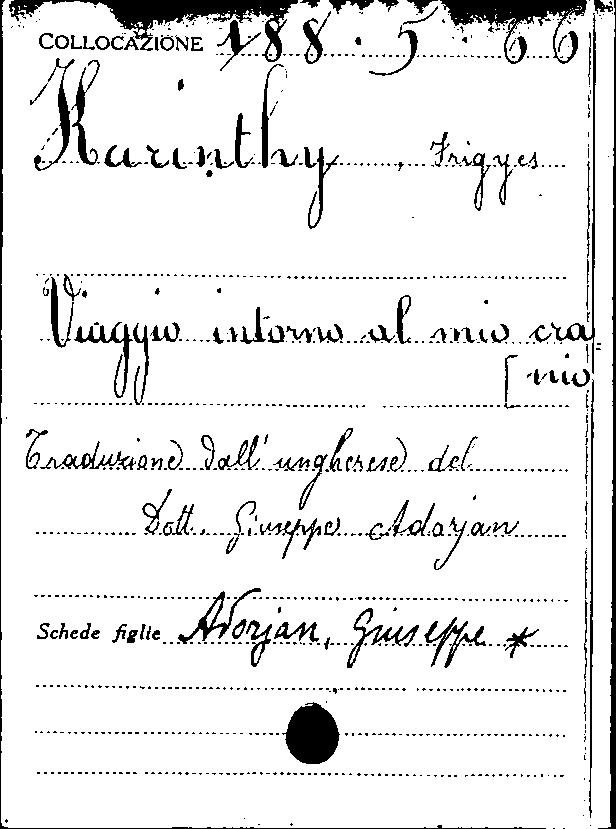 COLLOCAZIONE 188.5.66
Karinthy, Frigyes
Viaggio intorno al mio cra
[nio
Traduzione dall'ungherese del
Dott. Giuseppe Adorjan
Schede figlie Adorjan, Giuseppe *